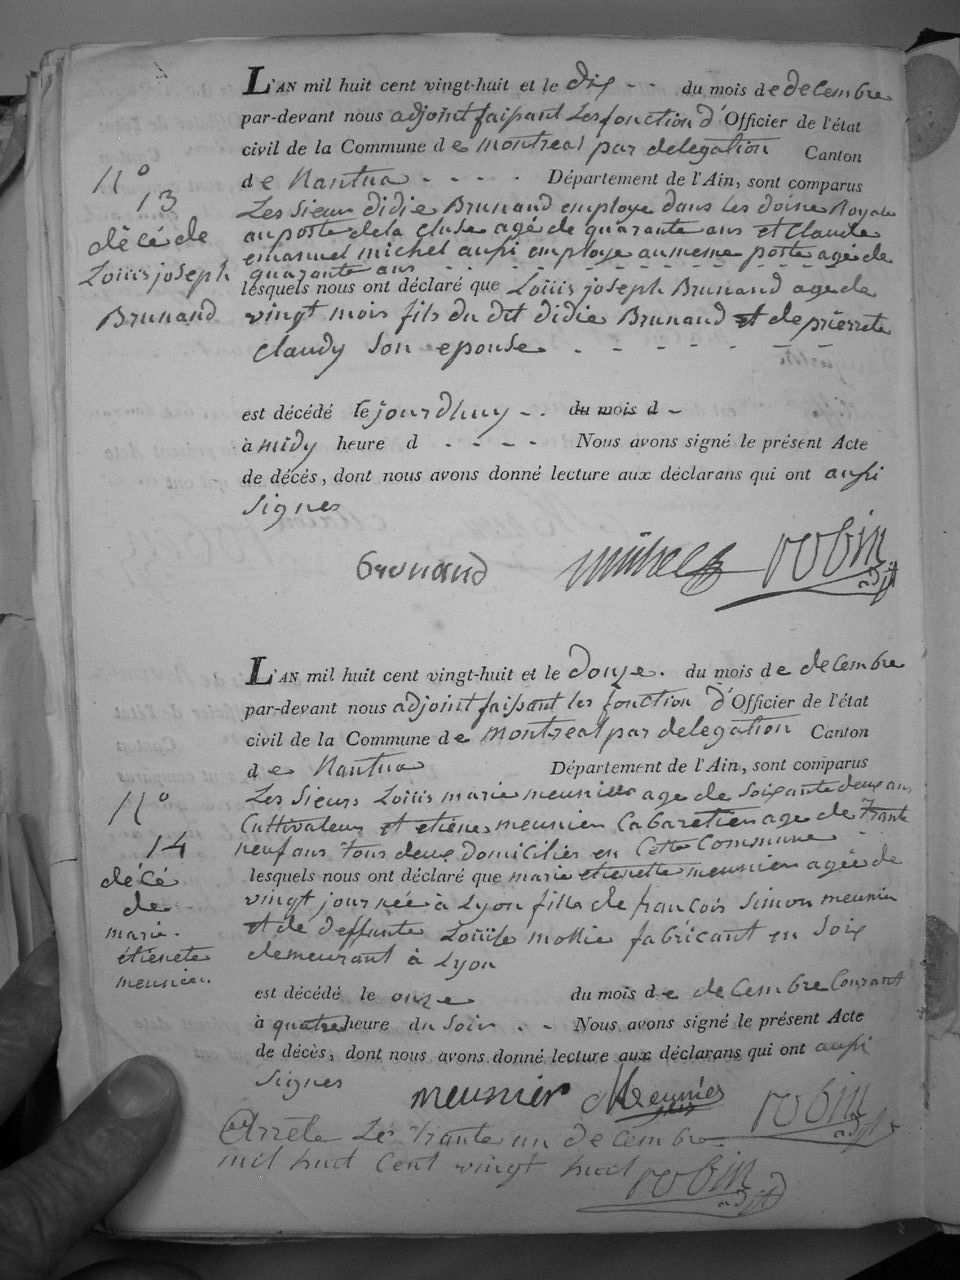 L'AN mil huit cent vingt-huit et le dix - - du mois de decembre
par-devant nous adjoint faisant les fonction d'Officier de l'état
civil de la Commune de montreal par delegation Canton
de Nantua - - - - Département de l'Ain, sont comparus
N° 13
décé de
Louis joseph
Brunand
Les sieur didie Brunand employe dans les doine Royale
au poste de la cluse agé de quarante ans et Claude
emanuel michel aussi employe au meme poste agé de
quarante ans - - - - - - - - - - -
lesquels nous ont déclaré que Louis joseph Brunand age de
vingt mois fils du dit didie Brunand et de pierrete
Claudy son epouse - - - - - - -
est décédé le jourdhuy - - du mois d -
à midy heure d - - - - Nous avons signé le présent Acte
de décés, dont nous avons donné lecture aux déclarans qui ont aussi
signes
brunand michel robin
adjt
L'AN mil huit cent vingt-huit et le donze. du mois de decembre
par-devant nous adjoint faisant les fonction d'Officier de l'état
civil de la Commune de montreal par delegation Canton
de Nantua Département de l'Ain, sont comparus
N°
14
decé
de
marie
étienete
meunier
Les sieurs Louis marie meunier age de soixante deux ans
Cultivateur et etiene meunier Cabaretier age de trante
neuf ans tous deux domiciliés en Cette Commune
lesquels nous ont déclaré que marie etienette meunier agée de
vingt jour née à Lyon fille de françois simon meunier
et de deffunte Louise mollie fabricant en soix
demeurant à Lyon
est décédé le onze du mois de decembre Courant
à quatre heure du soir - - Nous avons signé le présent Acte
de décès, dont nous avons donné lecture aux déclarans qui ont aussi
signes
meunier Meunier robin
adjt
Arrete Les trante un decembre
mil huit cent vingt huit robin
adjt